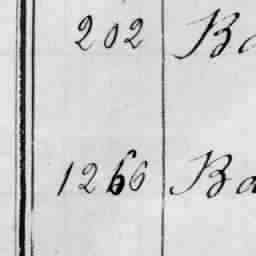 202 Ba
1266 Ba